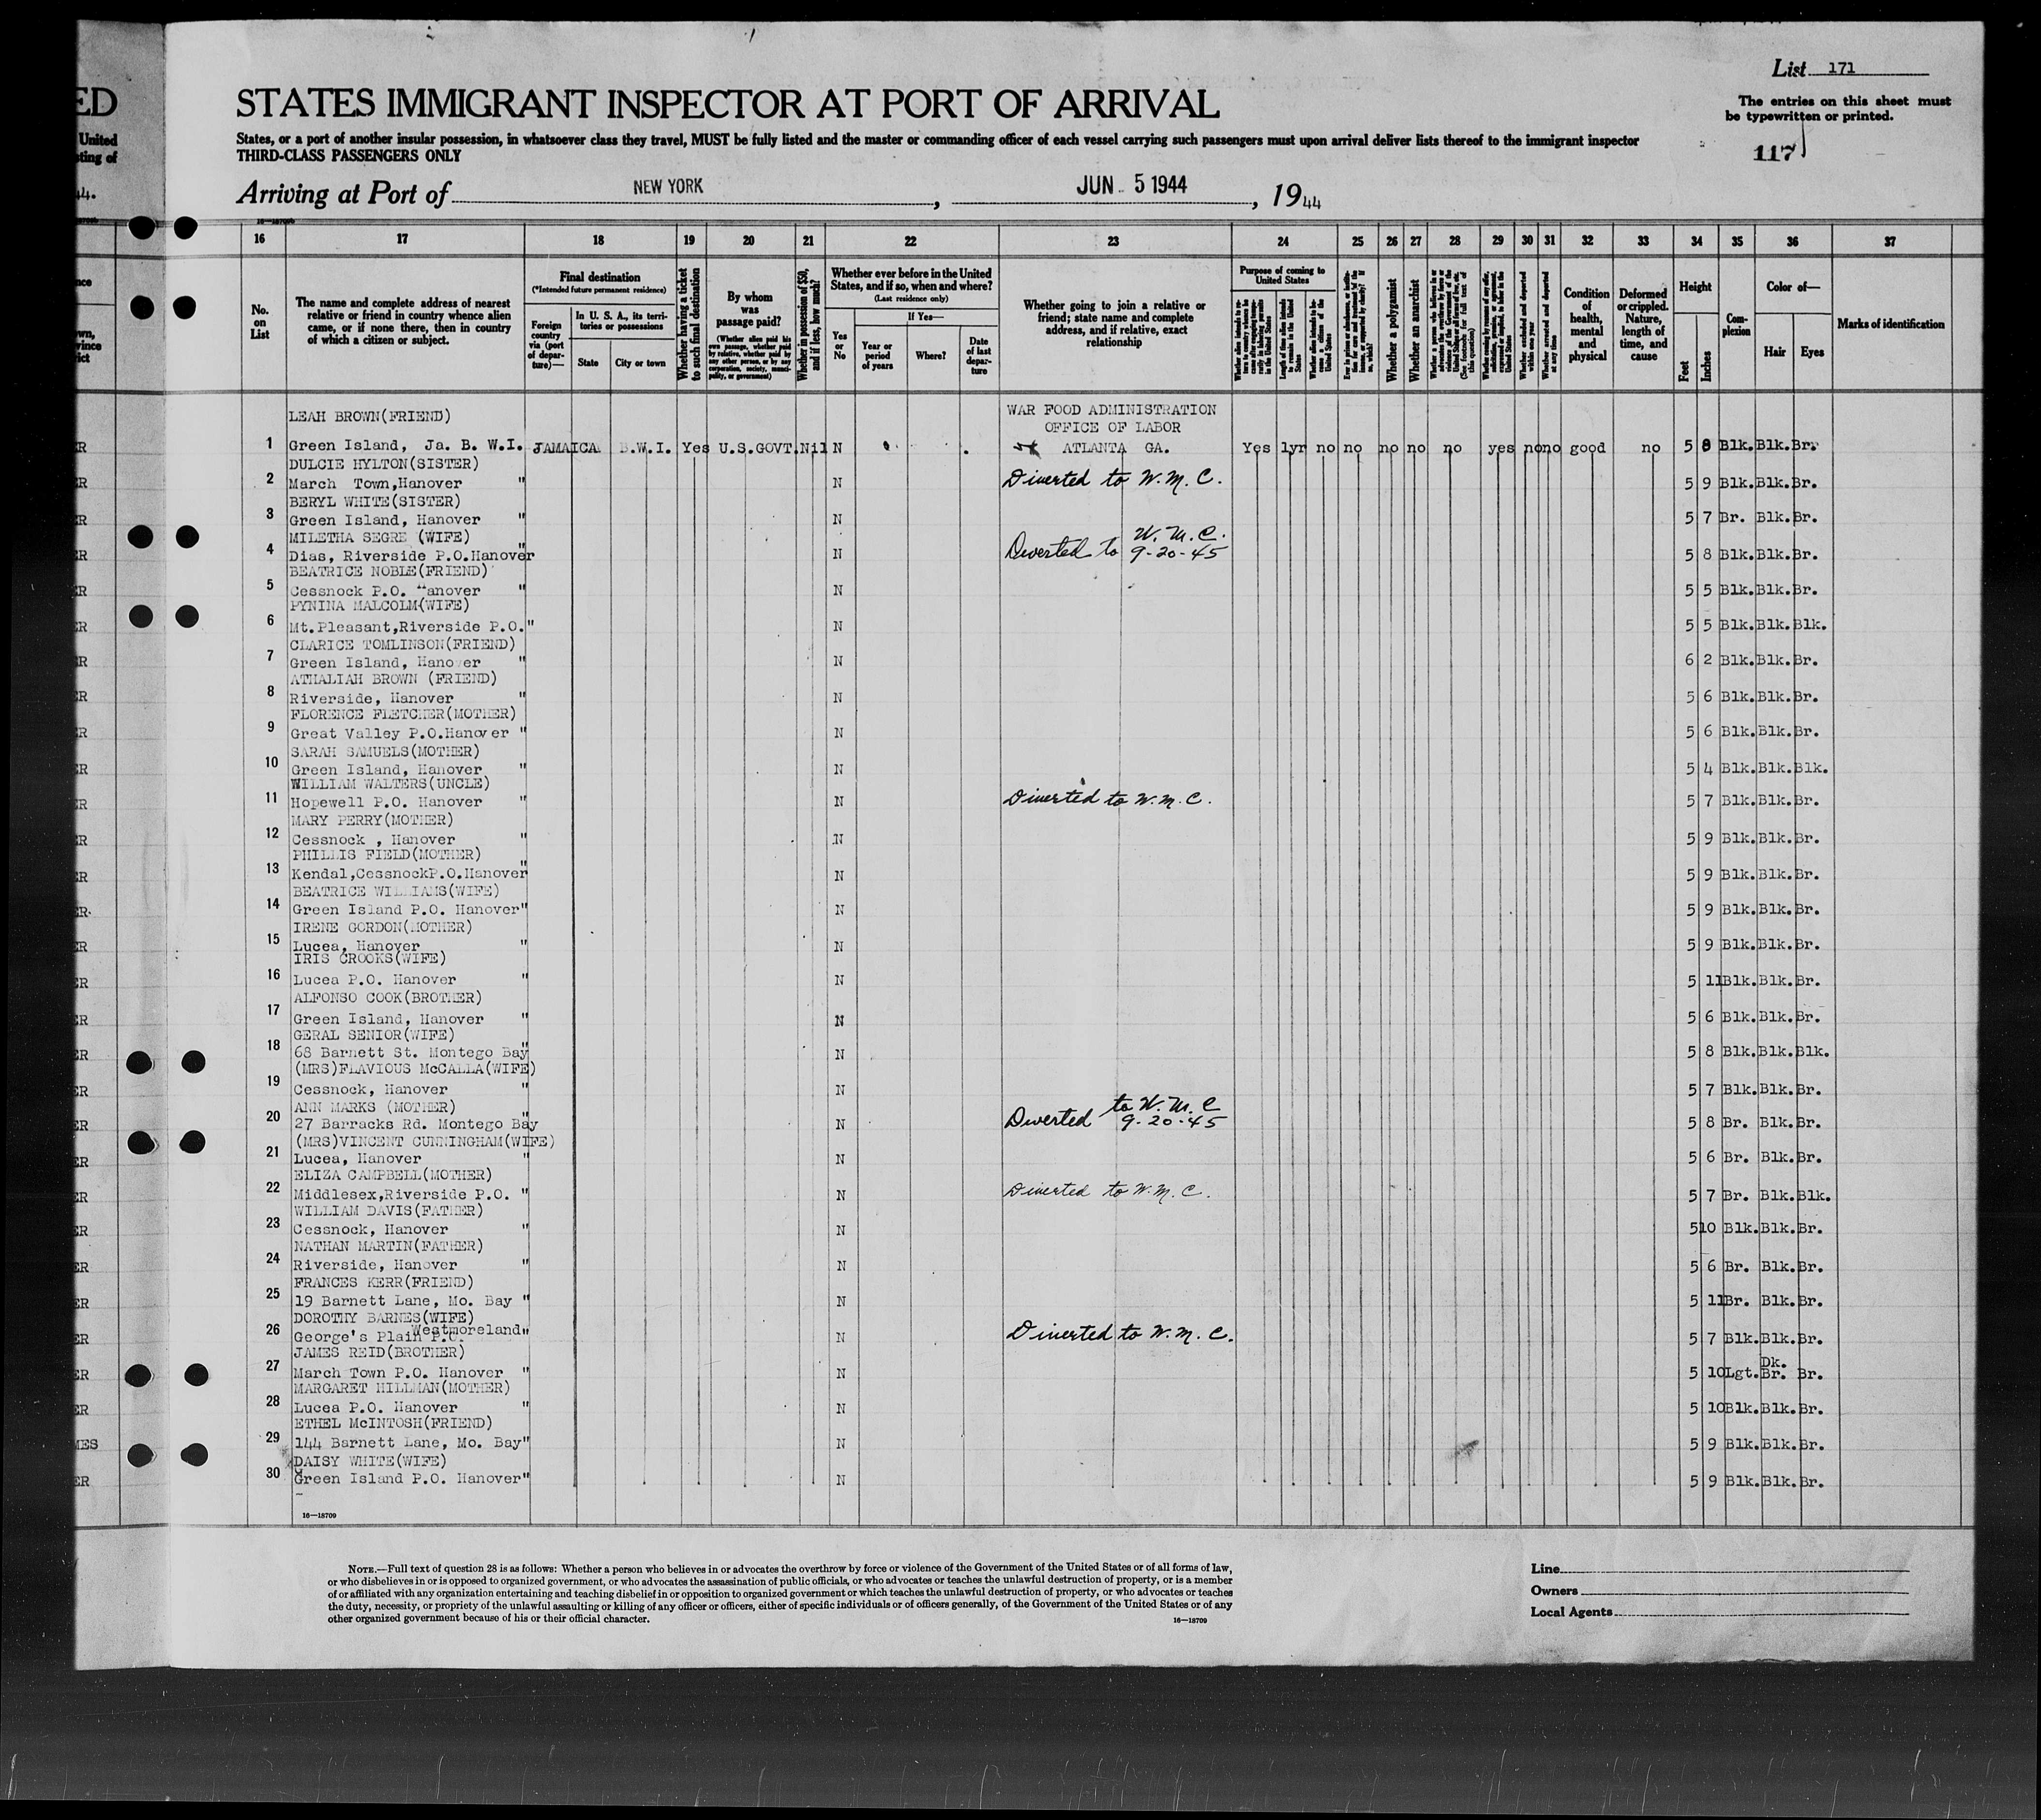 List 171
ED
STATES IMMIGRANT INSPECTOR AT PORT OF ARRIVAL
The entries on this sheet must
be typewritten or printed.
United
States, or a port of another insular possession, in whatsoever class they travel, MUST be fully listed and the master or commanding officer of each vessel carrying such passengers must upon arrival deliver lists thereof to the immigrant inspector
THIRD-CLASS PASSENGERS ONLY
117
44.
Arriving at Port of NEW YORK, JUN 5 1944, 1944
16 17 18 19 20 21 22 23 24 25 26 27 28 29 30 31 32 33 34 35 36 37
No. on List
The name and complete address of nearest relative or friend in country whence alien came, or if none there, then in country of which a citizen or subject.
Final destination
(*Intended future permanent residence)
Foreign country via (port of departure)—
In U. S. A., its territories or possessions
State
City or town
Whether having a ticket to such final destination
By whom was passage paid?
(Whether alien paid his own passage, whether paid by relative, whether paid by any other person, or by any corporation, society, municipality, or government)
Whether in possession of $50, and if less, how much?
Whether ever before in the United States, and if so, when and where?
(Last residence only)
Yes or No
If Yes—
Year or period of years
Where?
Date of last departure
Whether going to join a relative or friend; state name and complete address, and if relative, exact relationship
Purpose of coming to United States
Whether a polygamist
Whether an anarchist
Condition of health, mental and physical
Deformed or crippled. Nature, length of time, and cause
Height
Feet
Inches
Complexion
Color of—
Hair
Eyes
Marks of identification
LEAH BROWN(FRIEND) WAR FOOD ADMINISTRATION
OFFICE OF LABOR
1 Green Island, Ja. B. W.I. JAMAICA B.W.I. Yes U.S.GOVT. Nil N ATLANTA GA. Yes 1yr no no no no no yes no no good no 5 8 Blk. Blk. Br.
DULCIE HYLTON(SISTER)
2 March Town,Hanover " N Diverted to W.M.C. 5 9 Blk. Blk. Br.
BERYL WHITE(SISTER)
3 Green Island, Hanover " N 5 7 Br. Blk. Br.
MILETHA SEGRE (WIFE)
4 Dias, Riverside P.O.Hanover " N Diverted to W.M.C. 9-20-45 5 8 Blk. Blk. Br.
BEATRICE NOBLE(FRIEND)
5 Cessnock P.O. Hanover " N 5 5 Blk. Blk. Br.
PYNINA MALCOLM(WIFE)
6 Mt.Pleasant,Riverside P.O." N 5 5 Blk. Blk. Blk.
CLARICE TOMLINSON(FRIEND)
7 Green Island, Hanover " N 6 2 Blk. Blk. Br.
ATHALIAH BROWN (FRIEND)
8 Riverside, Hanover " N 5 6 Blk. Blk. Br.
FLORENCE FLETCHER(MOTHER)
9 Great Valley P.O.Hanover " N 5 6 Blk. Blk. Br.
SARAH SAMUELS(MOTHER)
10 Green Island, Hanover " N 5 4 Blk. Blk. Blk.
WILLIAM WALTERS(UNCLE)
11 Hopewell P.O. Hanover " N Diverted to W.M.C. 5 7 Blk. Blk. Br.
MARY PERRY(MOTHER)
12 Cessnock , Hanover " N 5 9 Blk. Blk. Br.
PHILLIS FIELD(MOTHER)
13 Kendal,CessnockP.O.Hanover " N 5 9 Blk. Blk. Br.
BEATRICE WILLIAMS(WIFE)
14 Green Island P.O. Hanover" N 5 9 Blk. Blk. Br.
IRENE GORDON(MOTHER)
15 Lucea, Hanover " N 5 9 Blk. Blk. Br.
IRIS CROOKS(WIFE)
16 Lucea P.O. Hanover " N 5 11 Blk. Blk. Br.
ALFONSO COOK(BROTHER)
17 Green Island, Hanover " N 5 6 Blk. Blk. Br.
GERAL SENIOR(WIFE)
18 68 Barnett St. Montego Bay " N 5 8 Blk. Blk. Blk.
(MRS)FLAVIOUS McCALLA(WIFE)
19 Cessnock, Hanover " N 5 7 Blk. Blk. Br.
ANN MARKS (MOTHER)
20 27 Barracks Rd. Montego Bay " N Diverted to W.M.C 9-20-45 5 8 Br. Blk. Br.
(MRS)VINCENT CUNNINGHAM(WIFE)
21 Lucea, Hanover " N 5 6 Br. Blk. Br.
ELIZA CAMPBELL(MOTHER)
22 Middlesex,Riverside P.O. " N Diverted to W.M.C. 5 7 Br. Blk. Blk.
WILLIAM DAVIS(FATHER)
23 Cessnock, Hanover " N 5 10 Blk. Blk. Br.
NATHAN MARTIN(FATHER)
24 Riverside, Hanover " N 5 6 Br. Blk. Br.
FRANCES KERR(FRIEND)
25 19 Barnett Lane, Mo. Bay " N 5 11 Br. Blk. Br.
DOROTHY BARNES(WIFE)
26 George's Plain P.O. Westmoreland" N Diverted to W.M.C. 5 7 Blk. Blk. Br.
JAMES REID(BROTHER)
27 March Town P.O. Hanover " N 5 10 Lgt. Dk. Br. Br.
MARGARET HILLMAN(MOTHER)
28 Lucea P.O. Hanover " N 5 10 Blk. Blk. Br.
ETHEL McINTOSH(FRIEND)
29 144 Barnett Lane, Mo. Bay" N 5 9 Blk. Blk. Br.
DAISY WHITE(WIFE)
30 Green Island P.O. Hanover" N 5 9 Blk. Blk. Br.
16—18709
NOTE.—Full text of question 28 is as follows: Whether a person who believes in or advocates the overthrow by force or violence of the Government of the United States or of all forms of law,
or who disbelieves in or is opposed to organized government, or who advocates the assassination of public officials, or who advocates or teaches the unlawful destruction of property, or is a member
of or affiliated with any organization entertaining and teaching disbelief in or opposition to organized government or which teaches the unlawful destruction of property, or who advocates or teaches
the duty, necessity, or propriety of the unlawful assaulting or killing of any officer or officers, either of specific individuals or of officers generally, of the Government of the United States or of any
other organized government because of his or their official character. 16—18709
Line
Owners
Local Agents